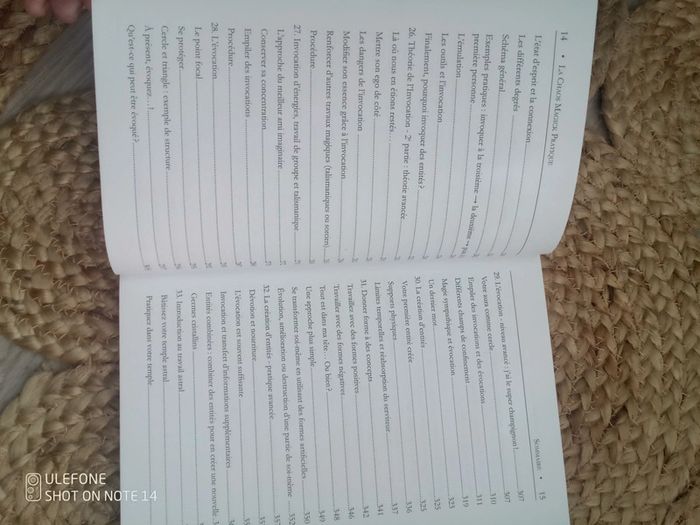 14 • LA CHAOS MAGICK PRATIQUE
L'état d'esprit et la connexion
Les différents degrés
Schéma général
Exemples pratiques : invoquer à la troisième → la deuxième →
première personne
L'émulation
Les outils et l'invocation
Finalement, pourquoi invoquer des entités?
26. Théorie de l'Invocation - 2e partie : théorie avancée
Là où nous en étions restés…
Mettre son ego de côté
Les dangers de l'invocation
Modifier son essence grâce à l'invocation
Renforcer d'autres travaux magiques (talismaniques ou sorciers)
Procédure
27. Invocation d'énergies, travail de groupe et talismanique
L'approche du meilleur ami imaginaire
Conserver sa concentration
Empiler des invocations
Procédure
28. L'évocation
Le point focal
Se protéger
Cercle et triangle : exemple de structure
À présent, évoquez…!
Qu'est-ce qui peut être évoqué?
SOMMAIRE • 15
29. L'évocation : niveau avancé : j'ai le super champignon! 307
Votre aura comme cercle 307
Empiler des invocations et des évocations 310
Différents champs de confinement 311
Magie sympathique et évocation 319
Un dernier mot 323
30. La création d'entités 325
Votre première entité créée 325
Supports physiques 336
Limites temporelles et réabsorption du serviteur 337
31. Donner forme à des concepts 341
Travailler avec des formes positives 342
Travailler avec des formes négatives 346
Tout est dans ma tête… Ou bien? 348
Une approche plus simple 349
Se transformer soi-même en utilisant des formes artificielles 350
Évolution, amélioration ou destruction d'une partie de soi-même 352
32. La création d'entités - pratique avancée
Dévotion et nourriture
L'évocation est souvent suffisante
Invocation et transfert d'informations supplémentaires
Entités combinées : combiner des entités pour en créer une nouvelle
Germes cristallins
33. Introduction au travail astral
Bâtissez votre temple astral
Pratiquez dans votre temple
ULEFONE
SHOT ON NOTE 14